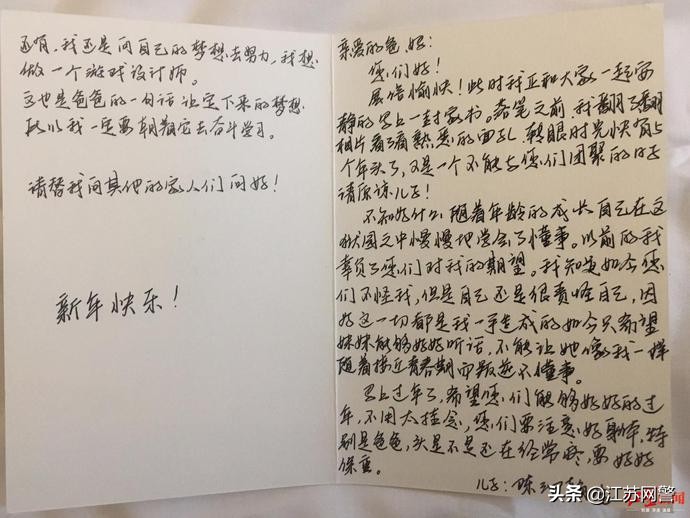 还有,我还是向自己的梦想去努力,我想
做一个游戏设计师。
这也是爸爸的一句话让定下来的梦想
所以我一定要朝期它去奋斗学习。
请替我向其他的家人们问好!
新年快乐!
亲爱的爸、妈:
您们好!
展信愉快!此时我正和大家一起安
静的写上一封家书。落笔之前,我翻了翻
相片看了看熟悉的面孔,转眼时光快有
个年头了,又是一个不能与您们团聚的日子
请原谅儿子!
不知为什么,随着年龄的成长自己在这
狱园之中慢慢地学会了懂事。以前的我
辜负了您们对我的期望。我知道如今您
们不怪我,但是自己还是很责怪自己,因
为这一切都是我一手造成的如今只希望
妹妹能够好好听话,不能让她像我一样
随着接近青春期而叛逆不懂事。
马上过年了,希望您们能够好好的过
年,不用太挂念,您们要注意好身体,特
别是爸爸,头是不是还在经常疼,要好好
保重。
儿子:陈
头条@江苏网警